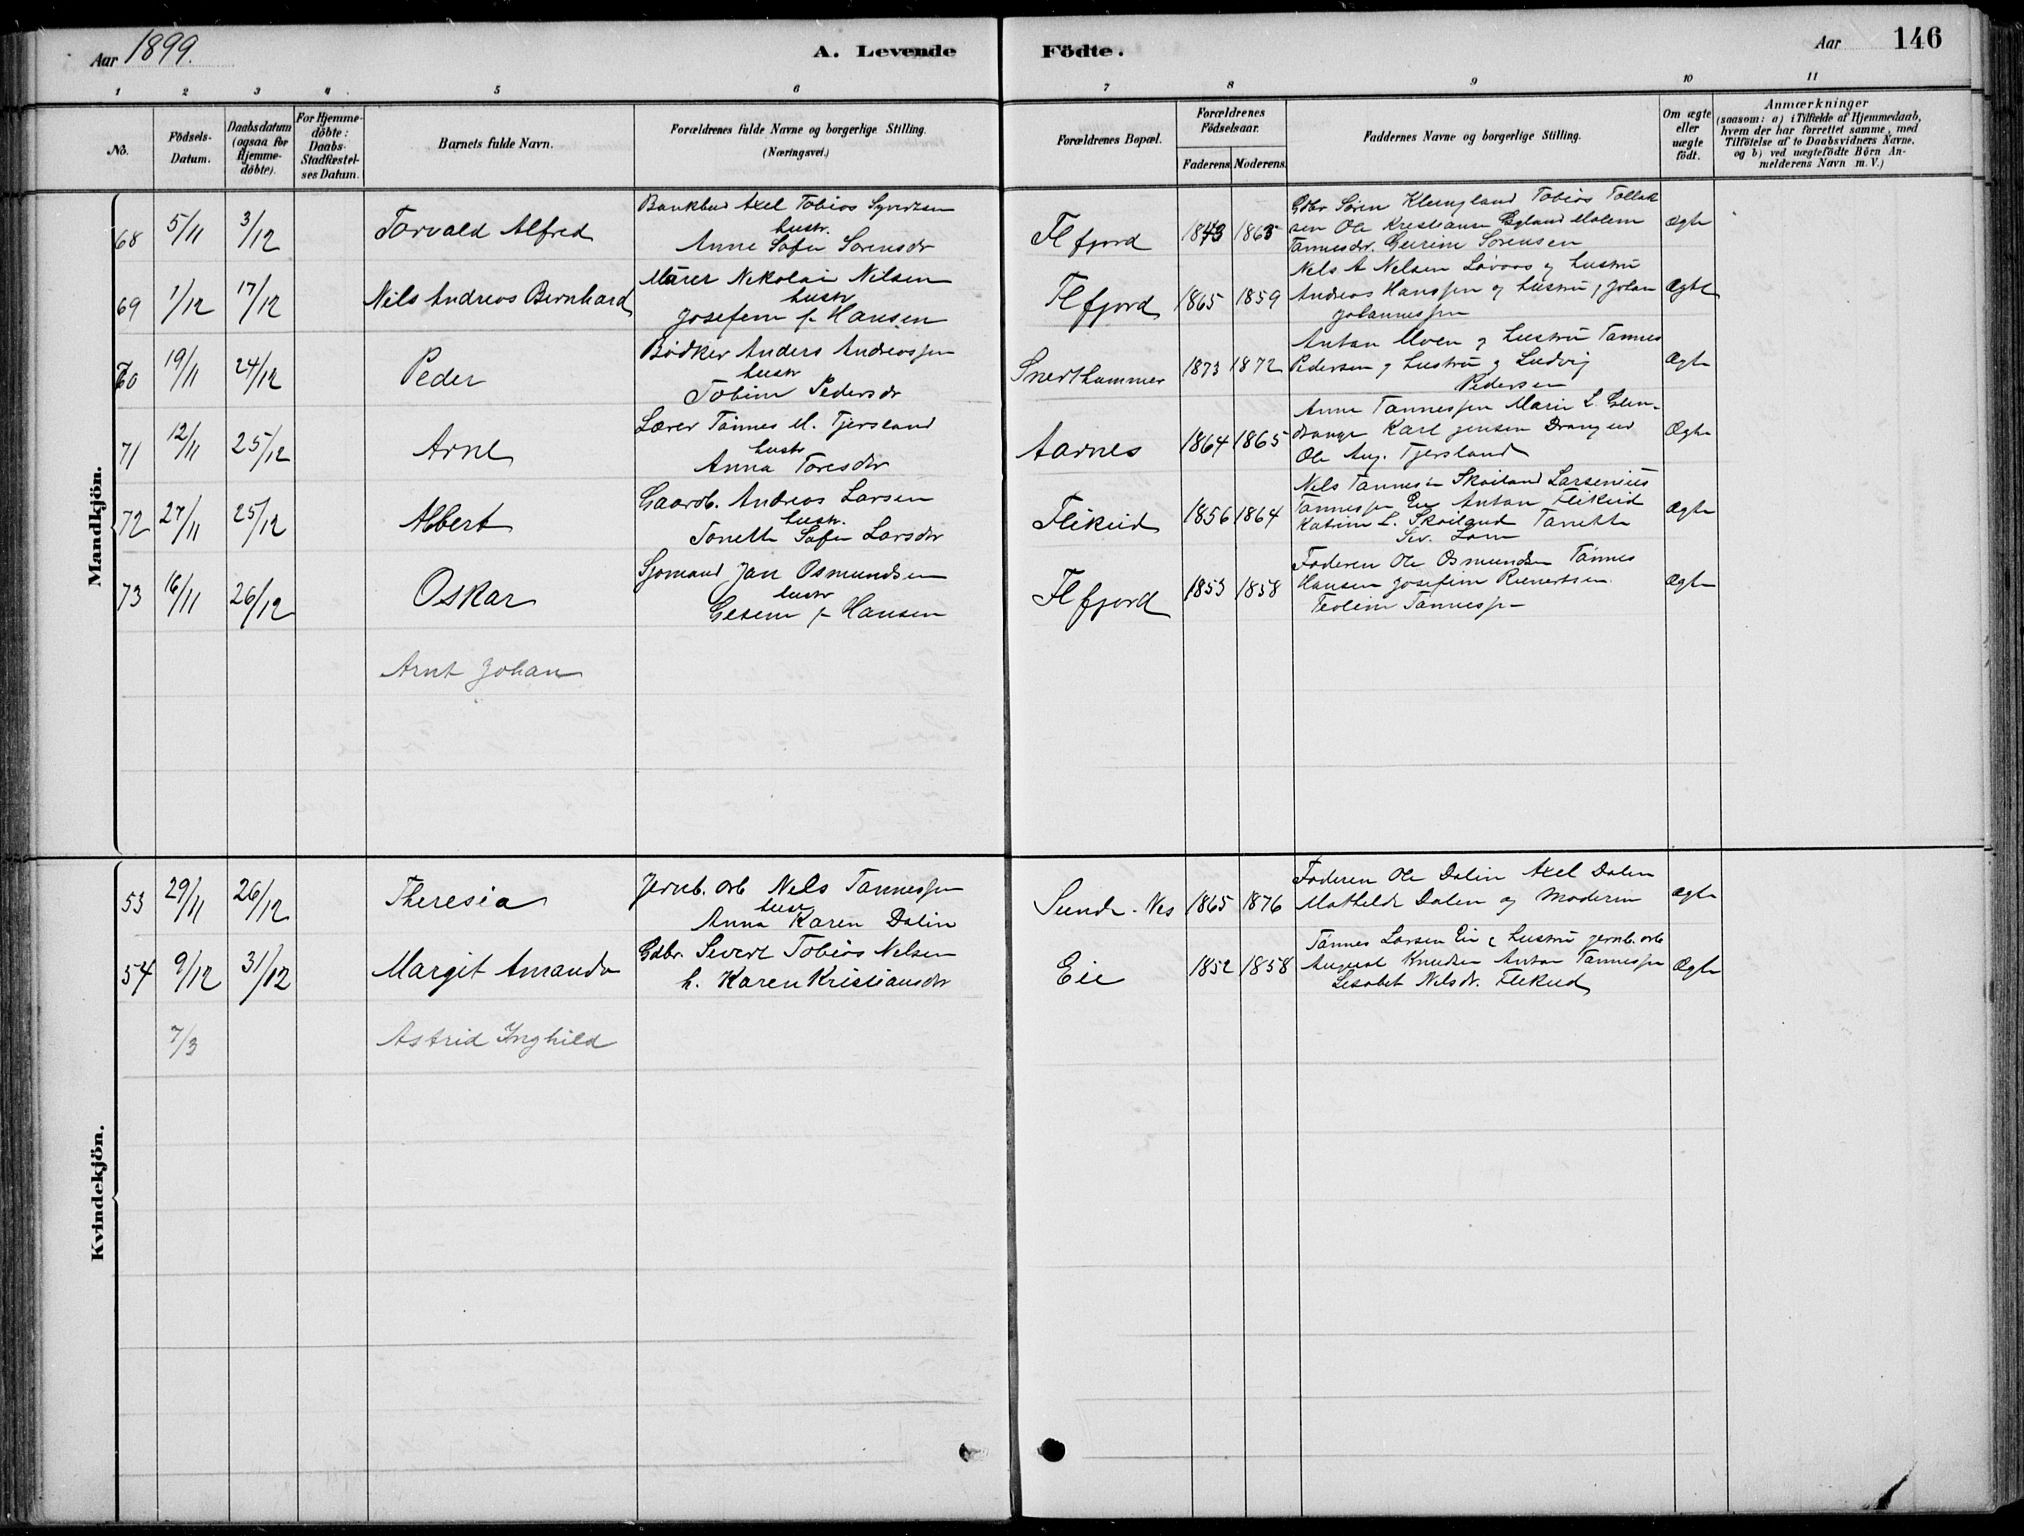 Aar 1899.
A. Levende
Födte.
Aar
146
1 2 3 4 5 6 7 8 9 10 11
No.
Födsels-Datum.
Daabsdatum (ogsaa for Hjemme-döbte).
For Hjemme-döbte: Daabs-Stadfæstel-ses Datum.
Barnets fulde Navn.
Forældrenes fulde Navne og borgerlige Stilling.
(Næringsvei.)
Forældrenes Bopæl.
Forældrenes Födselsaar.
Faderens. Moderens.
Faddernes Navne og borgerlige Stilling.
Om ægte eller uægte födt.
Anmærkninger
(saasom: a) i Tilfælde af Hjemmedaab,
hvem der har forrettet samme, med
Tilföielse af to Daabsvidners Navne,
og b) ved uægtefödte Börn An-
melderens Navn m. V.)
Mandkjön.
68 5/11 3/12 Torvald Alfred
Axel Tobias Syvertsen
hustr.
Anne Sofie Sörensdr
Flfjord 1843 1863
Gdbr Sören Klungland Tobias Tollak
sen Ole Kristiansen Egland Malene
Tønnesdr. Geirine Sørensen
Ægte
69 1/12 17/12 Nils Andreas Bernhard
Murer Nikolai Nilsen
hustr
Josefine f. Hansen
Flfjord 1865 1859
Nels A Nelsen Løvaas og hustru
Andreas Hanssen og hustru, Johan
Johannessen
Ægte
70 19/11 24/12 Peder
Bödker Anders Andreassen
hustr
Tobine Pedersdr
Snerthammer 1873 1872
Anton Moen og hustru Tønnes
Pedersen og hustru og Ludvig
Pedersen
Ægte
71 12/11 25/12 Arne
Lærer Tönnes M. Tjersland
hustr
Anna Toresdr
Aarnes 1864 1865
Anne Tønnessen Marie L. Glen-
drange Karl Jensen Dranged
Ole Aug. Tjersland
Ægte
72 27/11 25/12 Albert
Gaardb. Andreas Larsen
hustr.
Tonette Sofie Larsdr
Flikeid 1856 1864
Nils Tønnesen Skoiland Larsenius
Tønnessen Eie Anton Flikeid
Katrine L. Skoiland Tanette
Ægte
73 16/11 26/12 Oskar
Sjomand Jan Osmundsen
hustr
Gesine f. Hansen
Flfjord 1853 1858
Faderen Ole Osmundsen Tönnes
Hansen Josefine Reinertsen
Teoline Tønnessen
Ægte
Arnt Johan
Kvindekjön.
53 29/11 26/12 Theresia
Jernb. arb Nels Tønnessen
hustr
Anna Karen Dalin
Sunde. Nes 1865 1876
Faderen Ole Dalin Axel Dalen
Mathilde Dalen og Moderen
Ægte
54 9/12 31/12 Margit Amanda
Gdbr. Severt Tobias Nelsen
h. Karen Kristiansdr
Eie 1852 1858
Tönnes Larsen Eie & hustru jernb. arb
August Knudsen Anton Tønnessen
Lisabet Nilsdr. Flikeid
Ægte
7/3 Astrid Inghild